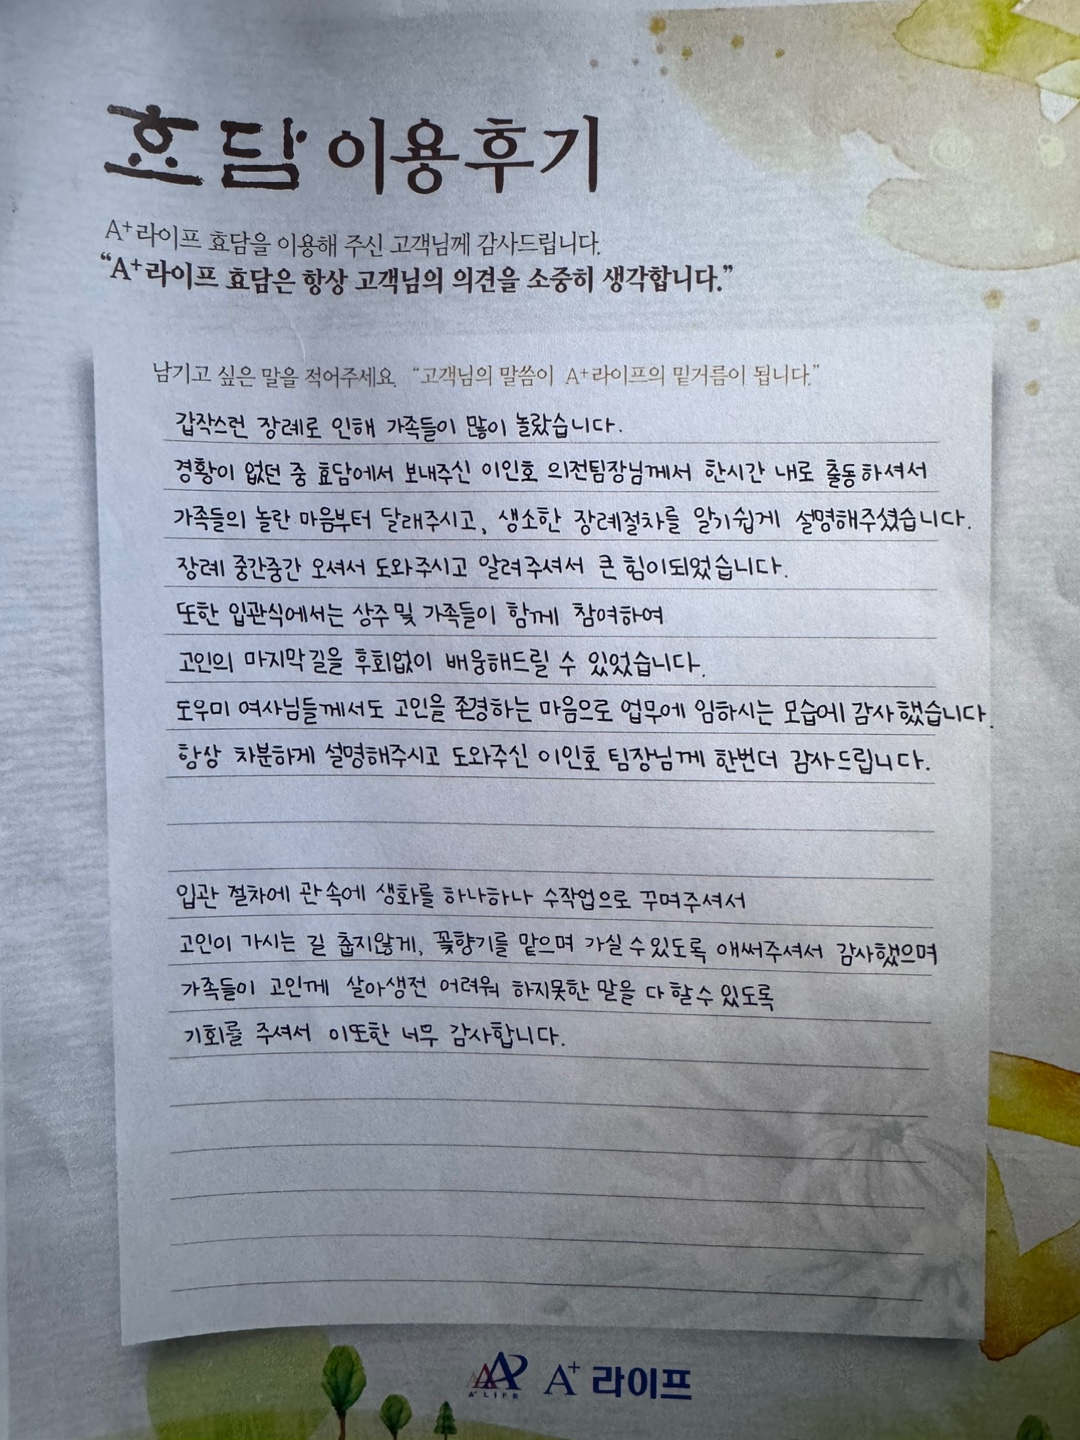 효담 이용후기
A+라이프 효담을 이용해 주신 고객님께 감사드립니다.
“A+라이프 효담은 항상 고객님의 의견을 소중히 생각합니다.”
남기고 싶은 말을 적어주세요. “고객님의 말씀이 A+라이프의 밑거름이 됩니다.”
갑작스런 장례로 인해 가족들이 많이 놀랐습니다.
경황이 없던 중 효담에서 보내주신 이인호 의전팀장님께서 한시간 내로 출동하셔서
가족들의 놀란 마음부터 달래주시고, 생소한 장례절차를 알기쉽게 설명해주셨습니다.
장례 중간중간 오셔서 도와주시고 알려주셔서 큰 힘이되었습니다.
또한 입관식에서는 상주 및 가족들이 함께 참여하여
고인의 마지막길을 후회없이 배웅해드릴 수 있었습니다.
도우미 여사님들께서도 고인을 존경하는 마음으로 업무에 임하시는 모습에 감사했습니다.
항상 차분하게 설명해주시고 도와주신 이인호 팀장님께 한번더 감사드립니다.
입관 절차에 관속에 생화를 하나하나 수작업으로 꾸며주셔서
고인이 가시는 길 춥지않게, 꽃향기를 맡으며 가실 수 있도록 애써주셔서 감사했으며
가족들이 고인께 살아생전 어려워 하지못한 말을 다 할 수 있도록
기회를 주셔서 이또한 너무 감사합니다.
A+ LIFE A+ 라이프